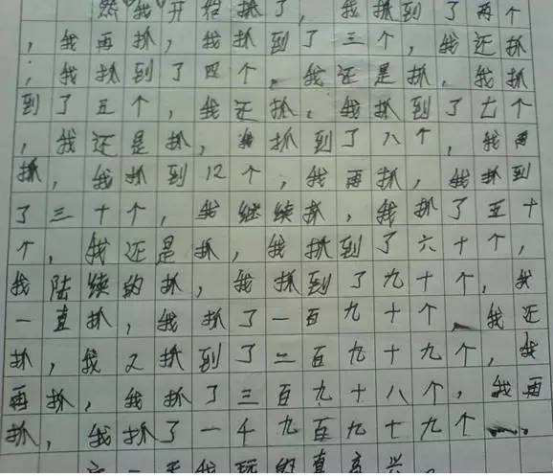 然我开始抓了，我抓到了两个
，我再抓，我抓到了三个，我还抓
，我抓到了四个。我还是抓，我抓
到了五个，我还抓。我抓到了七个
，我还是抓，我抓到了八个，我再
抓，我抓到12个，我再抓，我抓到
了三十个，我继续抓，我抓了五十
个，我还是抓，我抓到了六十个，
我陆续的抓，我抓到了九十个，我
一直抓，我抓了一百九十个、我还
抓，我又抓到了二百九十九个，我
再抓，我抓了三百九十八个，我再
抓，我抓了一千九百九十九个
天我玩的真高兴。